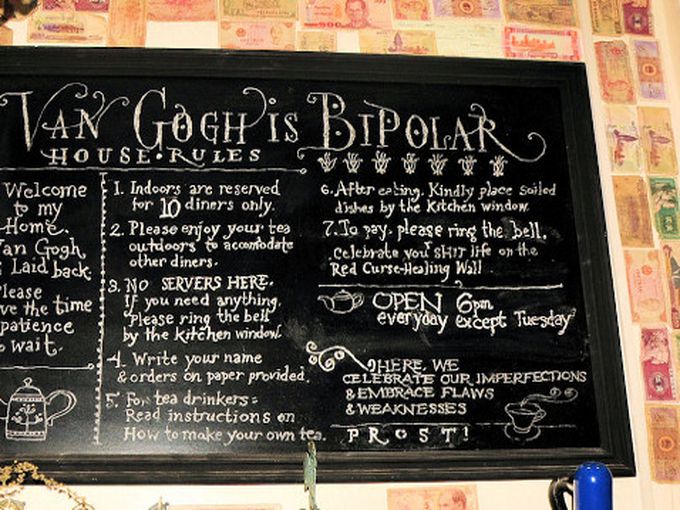 VAN GOGH IS BIPOLAR
HOUSE • RULES
Welcome
to my
Home.
Van Gogh
is Laid back.
Please
ve the time
patience
to wait.
1. Indoors are reserved
for 10 diners only.
2. Please enjoy your tea
outdoors to accomodate
other diners.
3. NO SERVERS HERE.
If you need anything,
Please ring the bell
by the kitchen window.
4. Write your name
& orders on paper provided.
5. For tea drinkers:
Read instructions on
How to make your own tea.
6. After eating, Kindly place soiled
dishes by the kitchen window.
7. To pay, please ring the bell,
celebrate your SHIT life on the
Red Curse-Healing Wall
OPEN 6pm
everyday except Tuesday
HERE, WE
CELEBRATE OUR IMPERFECTIONS
& EMBRACE FLAWS
& WEAKNESSES
PROST!